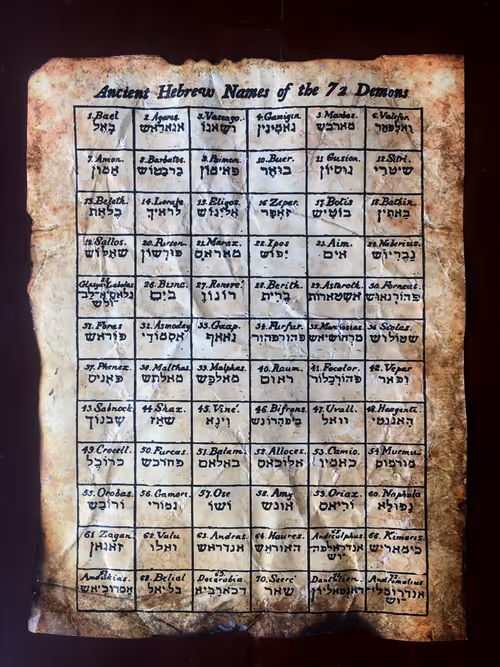 Ancient Hebrew Names of the 72 Demons
1. Bael 2. Agares 3. Vassago. 4. Gamigin 5. Marbas. 6. Valefor.
באל אגאראש ושאגו גאמיגין מארבש ואלפהר
7. Amon. 8. Barbatos. 9. Paimon 10. Buer. 11 Gusion. 12. Sitri.
אמון ברבטוש פאימון בואר גוסיון שיטרי
13. Beleth. 14. Leraje 15. Eligos. 16 Zepar. 17. Botis 18. Bathin
בלאת לראיך אליגוש זאפר בוטיש באתין
19. Sallos. 20. Purson. 21. Marax. 22. Ipos 23. Aim. 24. Naberius.
שאלוש פורשון מאראם יפוש אים נבריוש
Glasya-Labolas 26. Bune. 27. Ronove. 28. Berith. 29. Astaroth. 30. Forneus.
בים רונוו ברית אשטארות פורנאוש
31. Foras 32. Asmoday 33. Gaap. 34. Furfur. 35. Marchosias. 36. Stolas.
פוראש אסמודי גאאף פהורפהור שטולוש
37. Phenex. 38. Malthas. 39. Malphas. 40. Raum. 41. Focalor. 42. Vepar
פאניס מאלתש מאלפש ראום פהורכלור ופאר
43. Sabnock 44. Shax. 45. Viné. 46. Bifrons. 47. Uvall. 48. Haagenti.
שבנוך שאז וינא ביפהרונש וואל האגנטי
49. Crocell. 50. Furcas. 51. Balam. 52. Alloces. 53. Camio. 54. Murmu
כרוכל פהרכש באלאם אלוכאס כאמיו מורמוס
55. Orobas. 56. Gamori. 57. Ose 58. Amy 59. Oriax. 60. Naphula
ורובש גמורי ושו אונש וריאס נפולא
61 Zagan. 62. Valu 63. Andras. 64. Haures. 65. Andrealphus. 66. Kimaris.
זאגאן ואלו אנדראש האוראש אנדראלפהיוש כימאריש
Amdukias. 68. Belial 69. Decarabia 70. Seere Dantalion. 72. Andromalius
אמדוכיאש בליאל דכארביא שאר דאנטאליון אנדרומליוש